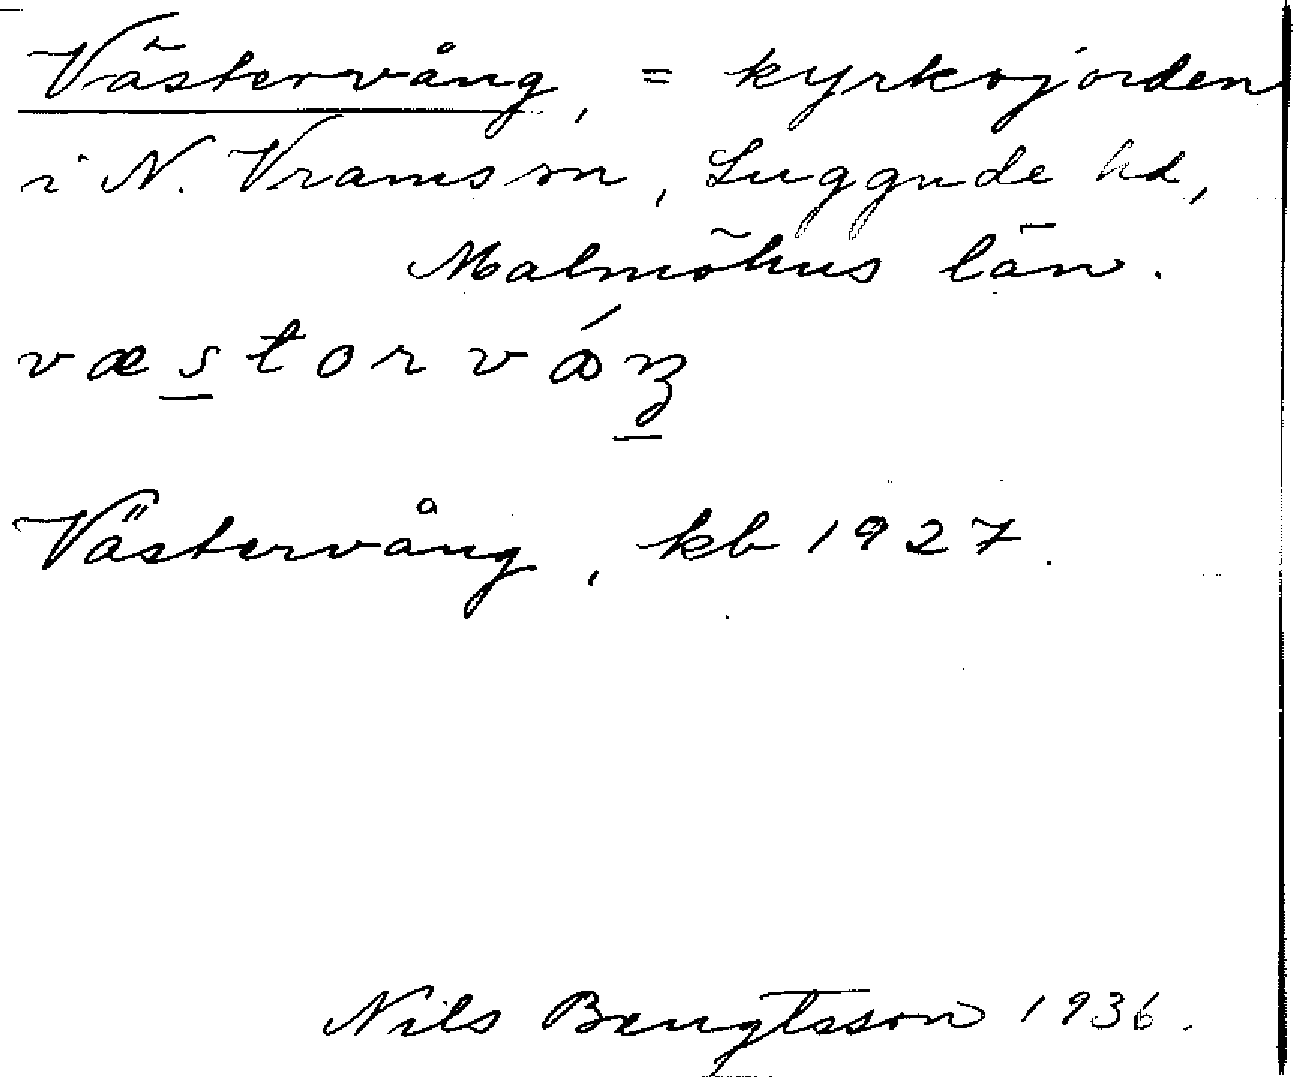 Västervång, = kyrkojorden
i N. Vrams sn, Luggude hd,
Malmöhus län.
væstorváŋ
Västervång, kb 1927.
Nils Bengtsson 1936.